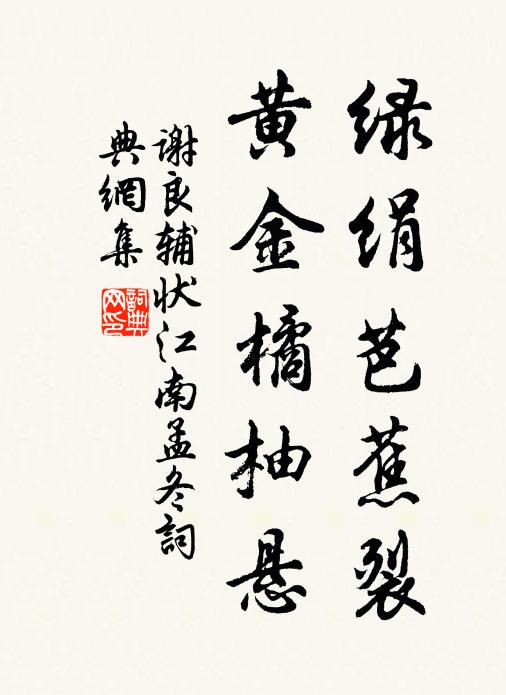 绿绢芭蕉裂
黄金橘柚悬
谢良辅状江南孟冬詞
典網集
詞典网印